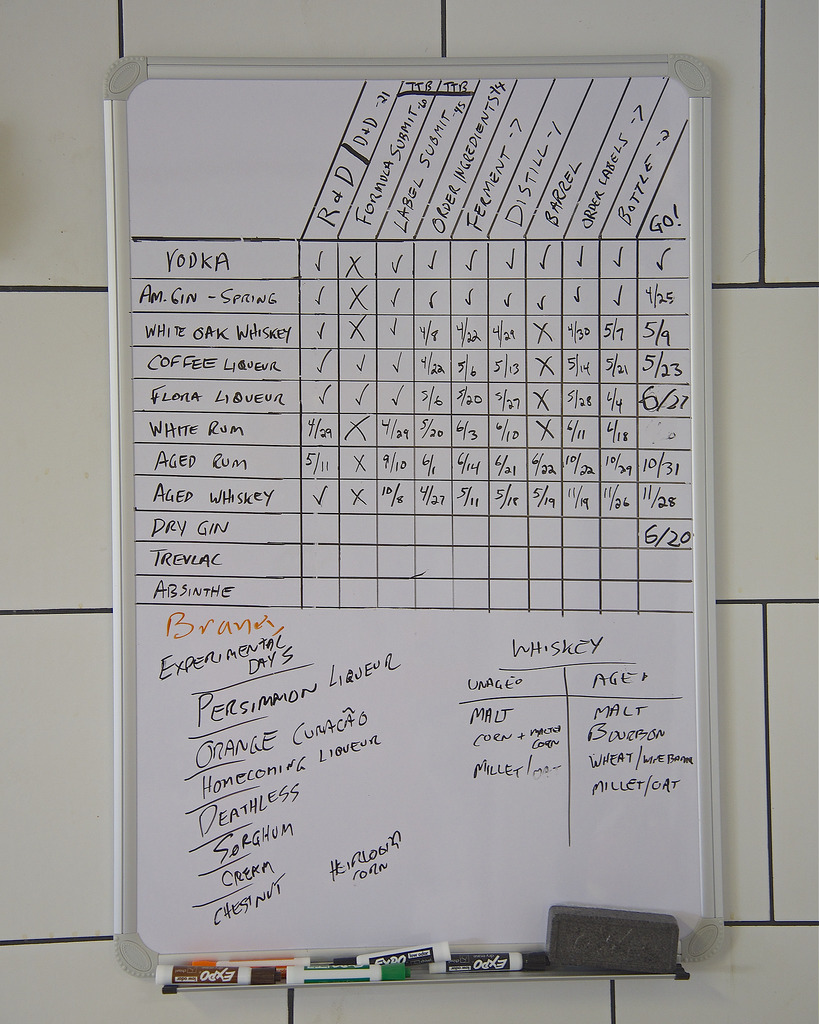 TTB TTB
R & D / D+D -21
FORMULA SUBMIT
LABEL SUBMIT -45
ORDER INGREDIENTS
FERMENT -7
DISTILL -1
BARREL
ORDER LABELS -7
BOTTLE -2
GO!
VODKA ✓ X ✓ ✓ ✓ ✓ ✓ ✓ ✓ ✓
AM. GIN - SPRING ✓ X ✓ ✓ ✓ ✓ ✓ ✓ ✓ 4/25
WHITE OAK WHISKEY ✓ X ✓ 4/8 4/22 4/29 X 4/30 5/7 5/9
COFFEE LIQUEUR ✓ ✓ ✓ 4/22 5/6 5/13 X 5/14 5/21 5/23
FLORA LIQUEUR ✓ ✓ ✓ 5/6 5/20 5/27 X 5/28 6/4 6/27
WHITE RUM 4/29 X 4/29 5/20 6/3 6/10 X 6/11 6/18
AGED RUM 5/11 X 9/10 6/1 6/14 6/21 6/22 10/22 10/29 10/31
AGED WHISKEY ✓ X 10/8 4/27 5/11 5/18 5/19 11/19 11/26 11/28
DRY GIN 6/20
TREVLAC
ABSINTHE
EXPERIMENTAL
DAYS
PERSIMMON LIQUEUR
ORANGE CURAÇÃO
HOMECOMING LIQUEUR
DEATHLESS
SORGHUM
CREAM
CHESTNUT
HEIRLOOM
CORN
WHISKEY
UNAGED AGED
MALT MALT
CORN + MALTED CORN BOURBON
MILLET/OAT WHEAT/
MILLET/OAT
EXPO
EXPO
EXPO